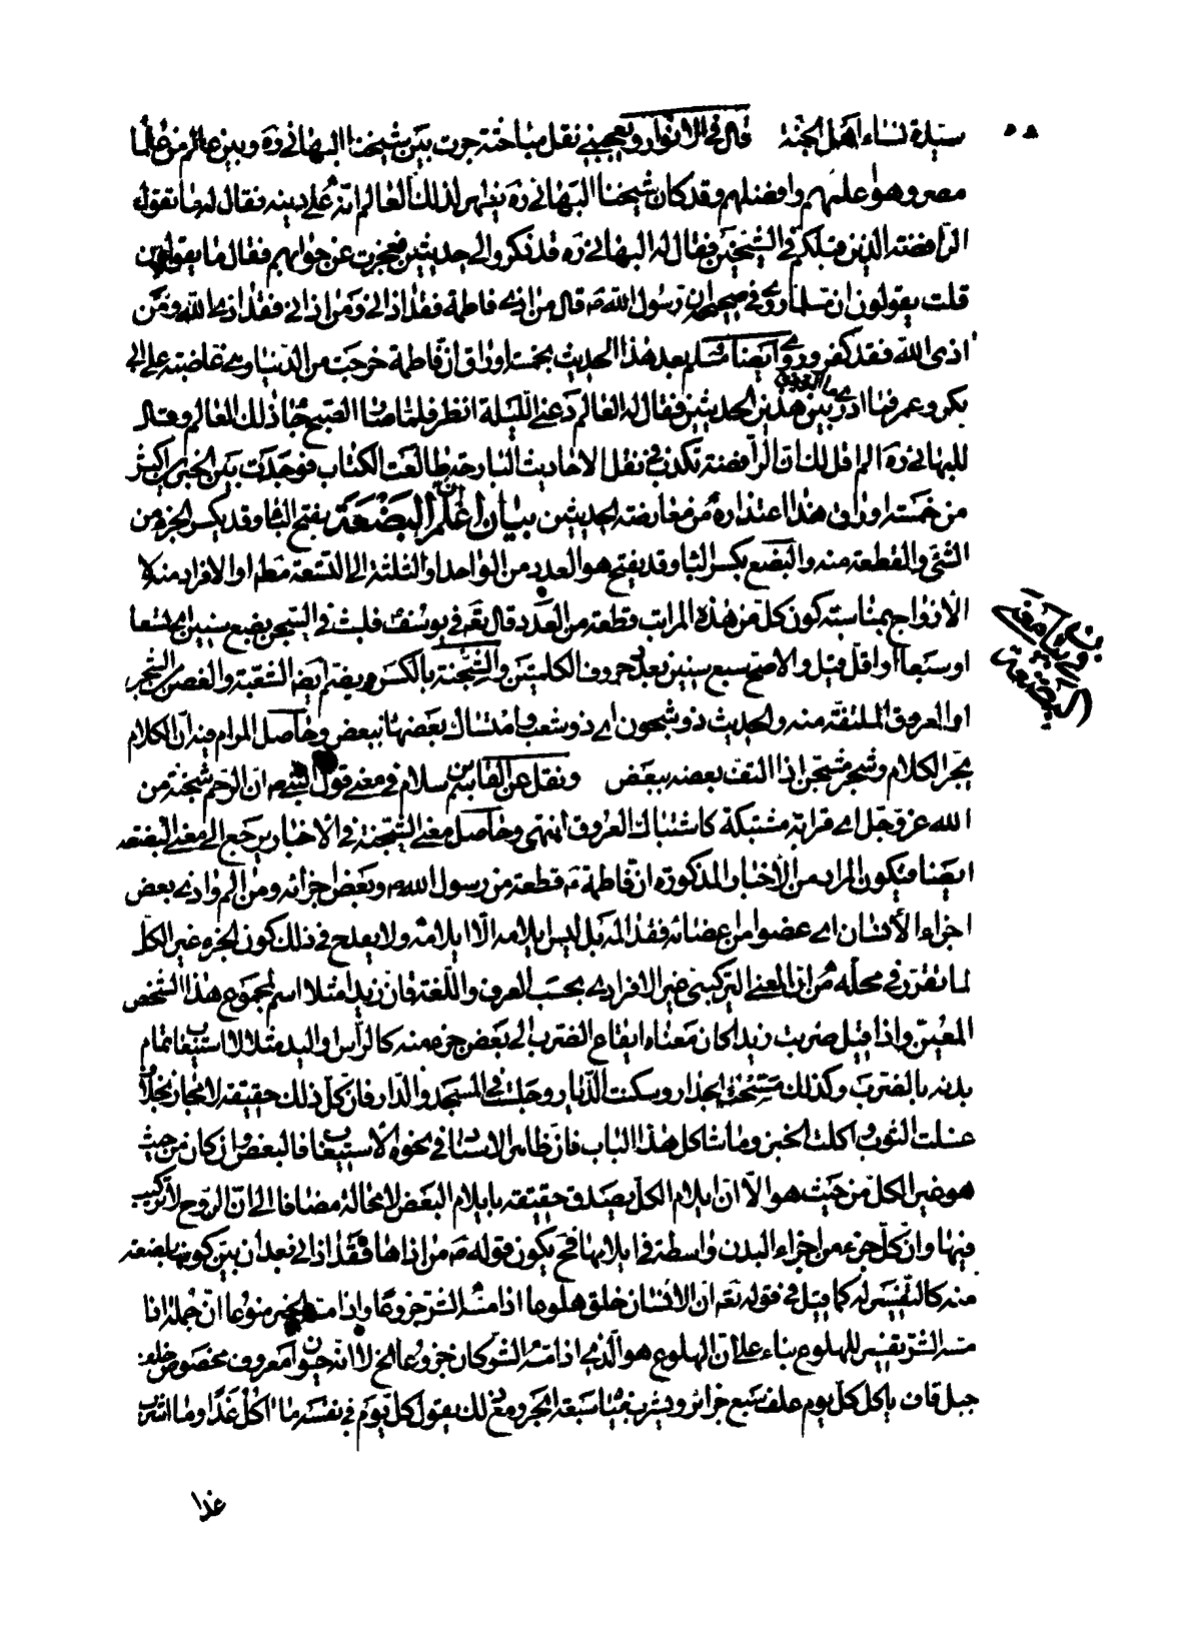 سيدة نساء اهل الجنة قال في الانوار ويعجبني نقل مباحثة جرت بين شيخنا البهائي ره وبين عالم من علماء
مصر وهو اعلمهم وافضلهم وقد كان شيخنا البهائي ره يظهر لذلك العالم انه على دينه فقال له ما تقول
الرافضة الذين قبلكم في الشيخين فقال له البهائي ره قد ذكروا لي حديثين فعجزت عن جوابهم فقال ما يقولون
قلت يقولون ان مسلما روى في صحيحه ان رسول الله ص قال من اذى فاطمة فقد اذاني ومن اذاني فقد اذى الله ومن
اذى الله فقد كفر وروى ايضا مسلم بعد هذا الحديث بخمسة اوراق ان فاطمة خرجت من الدنيا وهي غاضبة على ابي
بكر وعمر فما ادرى ما التوفيق بين هذين الحديثين فقال له العالم دعني الليلة انظر فلما صار الصبح جاء ذلك العالم وقال
للبهائي ره الم اقل لك ان الرافضة تكذب في نقل الاحاديث البارحة طالعت الكتاب فوجدت بين الخبرين اكثر
من خمسة اوراق هذا اعتذاره من معارضة الحديثين بيان اعلم ان البضعة بفتح الباء وقد يكسر الجزء من
الشئ والقطعة منه والبضع بكسر الباء وقد يفتح هو العدد من الواحد او الثلثة الى التسعة مطلقا او الافراد منه لا
الازواج بمناسبة كون كل من هذه المراتب قطعة من العدد قال تع في يوسف فلبث في السجن بضع سنين اي تسعا
او سبعا او اقل قيل والاصح سبع سنين بعدد حروف الكلمتين والشجنة بالكسر ويضم ايضا الشعبة والغصن من الشجر
او العروق الملتفة منه والحديث ذو شجون اي ذو شعب وامتساك بعضها ببعض وحاصل المرام فيه ان الكلام
يجر الكلام وشجر متشجن اذا التف بعضه ببعض ونقل عن القاسم بن سلام في معنى قول النبي ص ان الرحم شجنة من
الله عز وجل اي قرابة مشتبكة كاشتباك العروق انتهى وحاصل معنى الشجنة في الاخبار يرجع الى معنى البضعة
ايضا فيكون المراد من الاخبار المذكورة ان فاطمة ع قطعة من رسول الله ص وبعض اجزائه ومن الم واذى بعض
اجزاء الانسان اي عضوا من اعضائه فقد المه بل ليس ايلامه الا ايلامه ولا يقدح في ذلك كون الجزء غير الكل
لما تقرر في محله من ان المعنى التركيبي غير الافرادي بحسب العرف واللغة فان زيدا مثلا اسم لمجموع هذا الشخص
المعين واذا قيل ضربت زيدا كان معناه ايقاع الضرب الى بعض جزء منه كالرأس واليد مثلا لا استيعاب تمام
بدنه بالضرب وكذلك مسحت الجدار وسكنت الديار وجلست في المسجد والدار فان كل ذلك حقيقة لا مجاز بخلاف
غسلت الثوب واكلت الخبز وما شاكل هذا الباب فان ظاهر الاسناد في نحوه الاستيعاب فالبعض وان كان من حيث
هو غير الكل من حيث هو الا ان ايلام الكل يصدق حقيقة بايلام البعض لا محالة مضافا الى ان الروح لا تركيب
فيها وان كل جزء من اجزاء البدن واسطة في ايلامها فح يكون قوله ص من اذاها فقد اذاني بعد ان بين كونها بضعة
منه كالتفسير له كما قيل في قوله تع ان الانسان خلق هلوعا اذا مسه الشر جزوعا واذا مسه الخير منوعا ان جملة اذا
مسه الشر تفسير للهلوع بناء على ان الهلوع هو الذي اذا مسه الشر كان جزوعا الخ لا انه حيوان معروف مخصوص خلف
جبل قاف ياكل كل يوم علف سبع جزائر ويشرب مياه سبعة ابحر ومع ذلك يقول كل يوم في نفسه ما اكل غدا وما اشرب
غدا
بيان معنى
البضعة